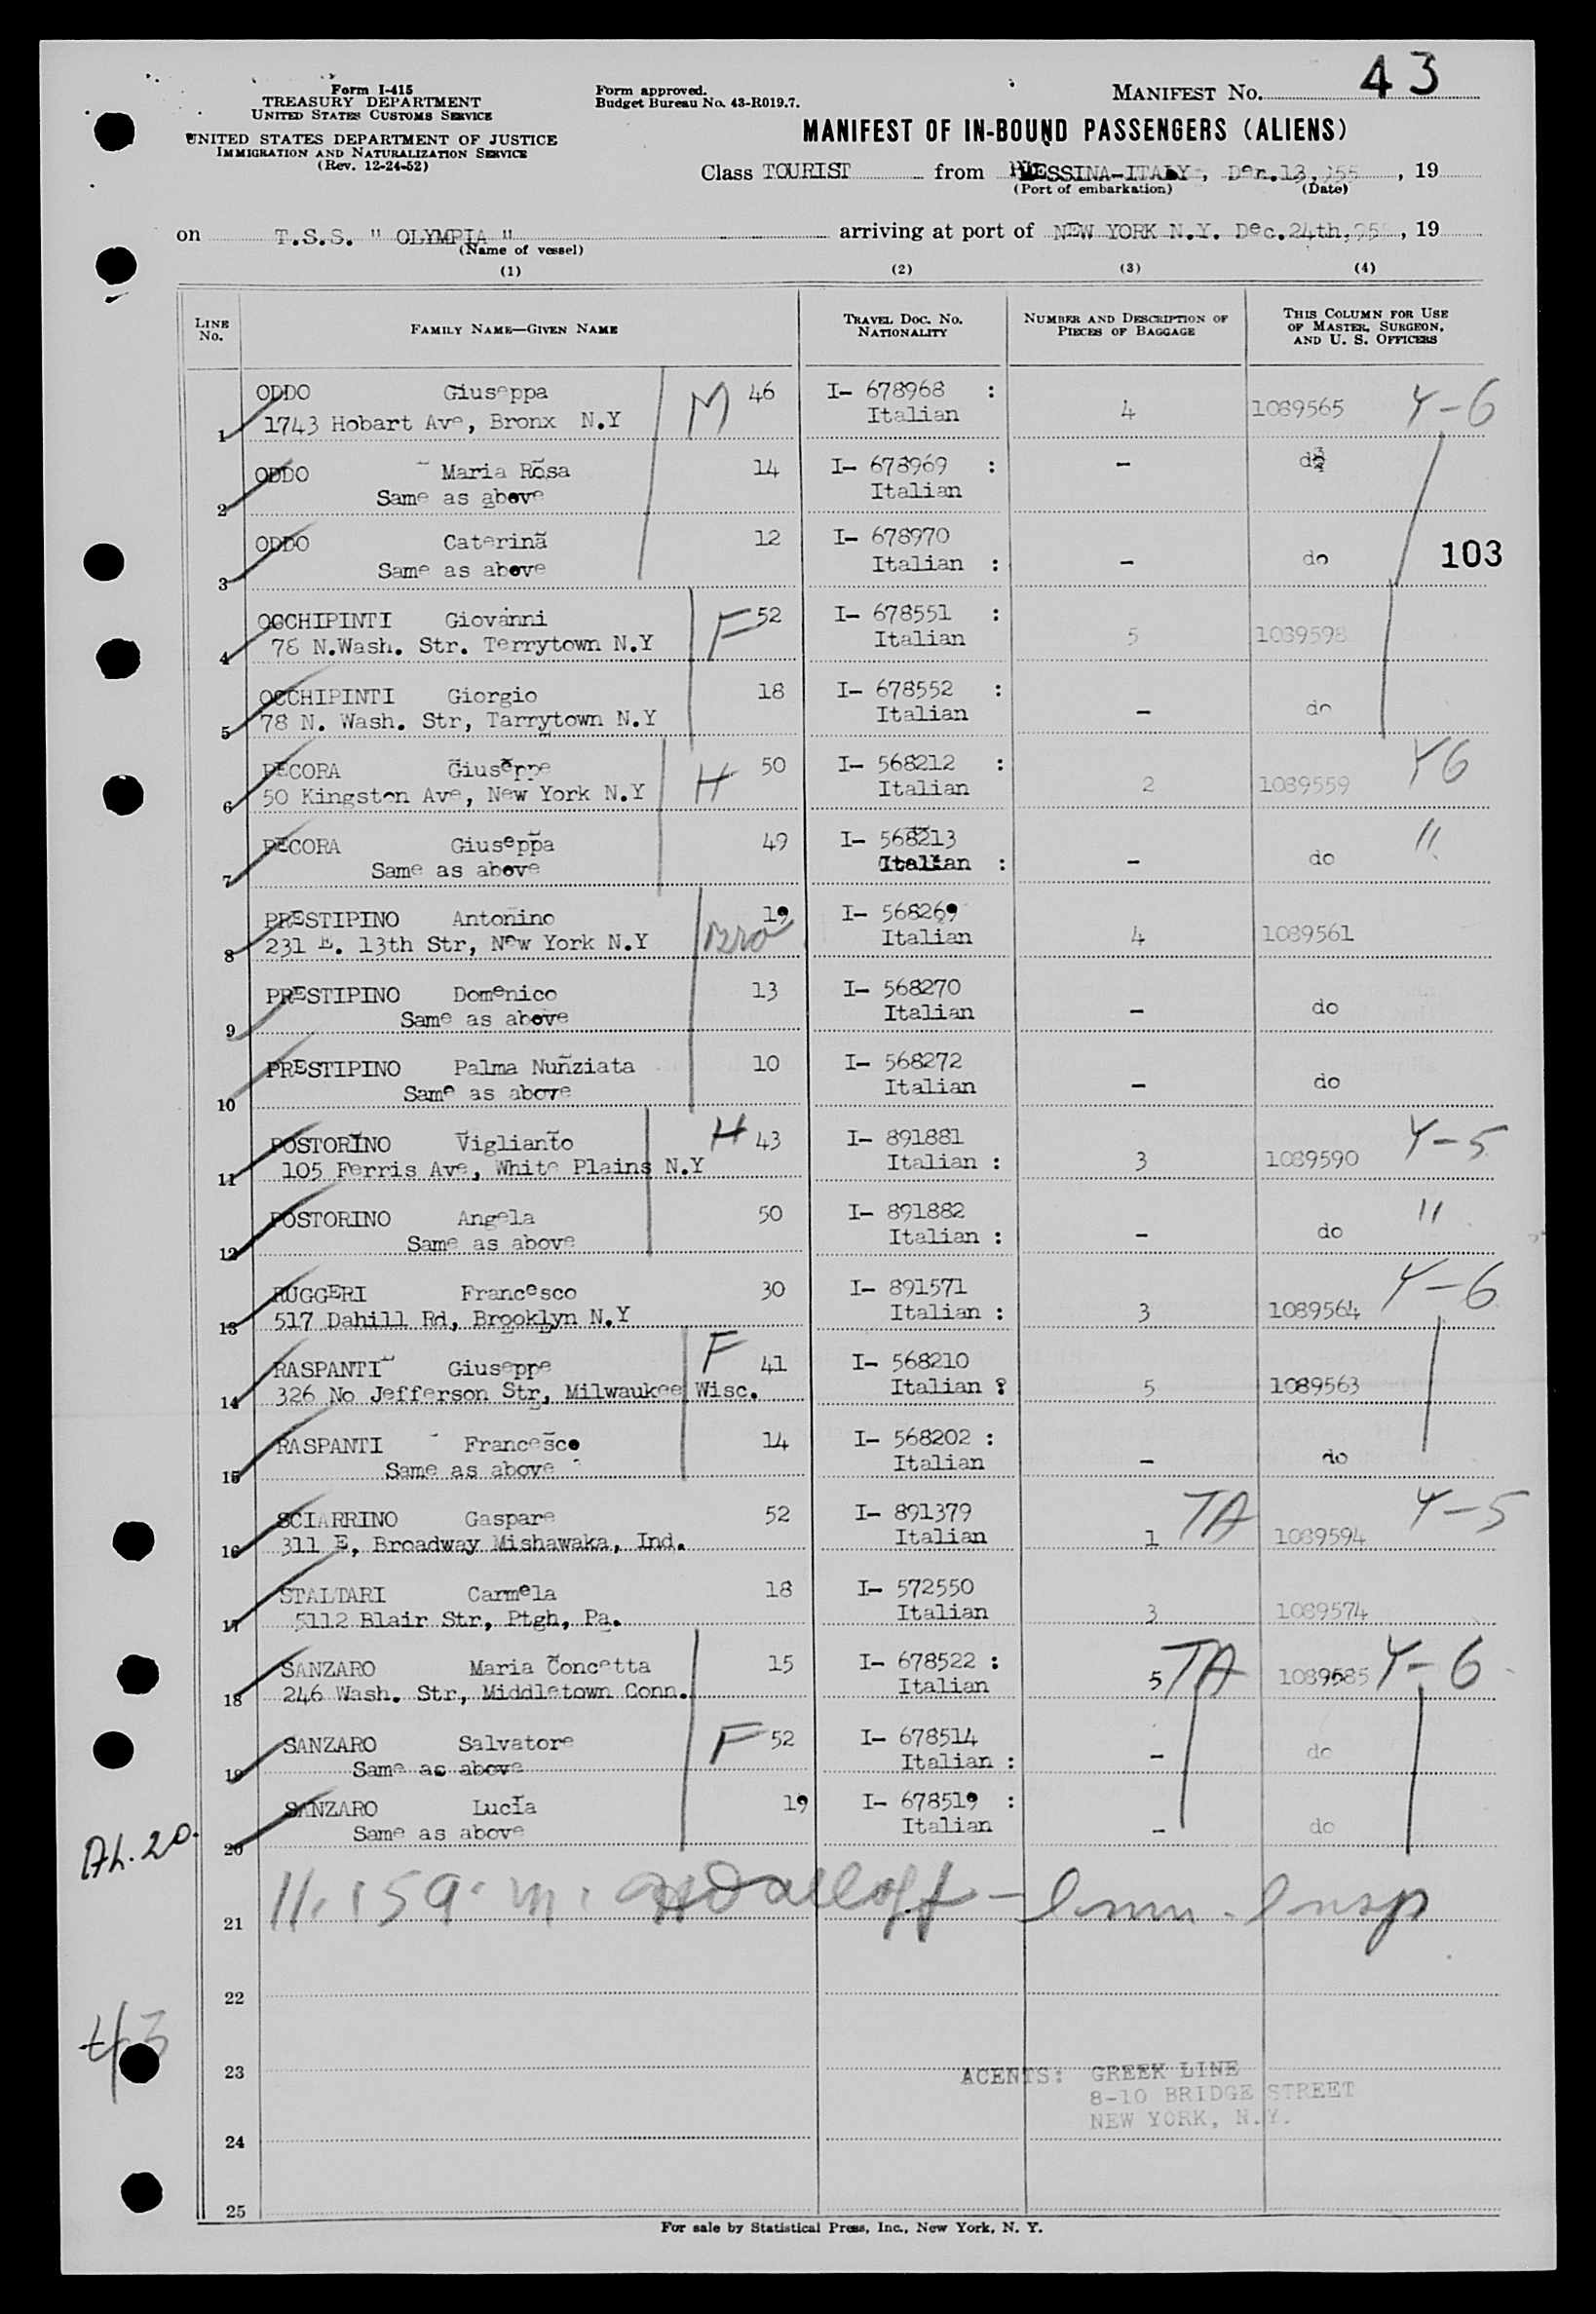 Form I-415
TREASURY DEPARTMENT
UNITED STATES CUSTOMS SERVICE
UNITED STATES DEPARTMENT OF JUSTICE
IMMIGRATION AND NATURALIZATION SERVICE
(Rev. 12-24-52)
Form approved.
Budget Bureau No. 43-R019.7.
MANIFEST NO. 43
MANIFEST OF IN-BOUND PASSENGERS (ALIENS)
Class TOURIST from MESSINA-ITALY, Dec.13, 955, 19
(Port of embarkation) (Date)
on T.S.S. " OLYMPIA " arriving at port of NEW YORK N.Y. Dec.24th, 19
(Name of vessel)
(1) (2) (3) (4)
LINE No. FAMILY NAME—GIVEN NAME TRAVEL DOC. NO. NATIONALITY NUMBER AND DESCRIPTION OF PIECES OF BAGGAGE THIS COLUMN FOR USE OF MASTER, SURGEON, AND U. S. OFFICERS
ODDO Giuseppa M 46 I- 678968 :
1 1743 Hobart Ave, Bronx N.Y Italian 4 1089565 Y-6
ODDO Maria Rosa 14 I- 678969 : - do
2 Same as above Italian
ODDO Caterina 12 I- 678970
3 Same as above Italian : - do 103
OCCHIPINTI Giovanni F 52 I- 678551 :
4 78 N.Wash. Str. Terrytown N.Y Italian 5 1089598
OCCHIPINTI Giorgio 18 I- 678552 :
5 78 N. Wash. Str, Tarrytown N.Y Italian - do
PECORA Giuseppe H 50 I- 568212 : Y6
6 50 Kingston Ave, New York N.Y Italian 2 1089559
PECORA Giuseppa 49 I- 568213 "
7 Same as above Italian : - do
PRESTIPINO Antonino 19 I- 568269
8 231 E. 13th Str, New York N.Y Bro Italian 4 1089561
PRESTIPINO Domenico 13 I- 568270
9 Same as above Italian - do
PRESTIPINO Palma Nunziata 10 I- 568272
10 Same as above Italian - do
POSTORINO Viglianto H 43 I- 891881 Y-5
11 105 Ferris Ave, White Plains N.Y Italian : 3 1089590
POSTORINO Angela 50 I- 891882 "
12 Same as above Italian : - do
RUGGERI Francesco 30 I- 891571 Y-6
13 517 Dahill Rd, Brooklyn N.Y Italian : 3 1089564
RASPANTI Giuseppe F 41 I- 568210
14 326 No Jefferson Str, Milwaukee Wisc. Italian : 5 1089563
RASPANTI Francesco 14 I- 568202 :
15 Same as above Italian - do
SCIARRINO Gaspare 52 I- 891379 TA Y-5
16 311 E, Broadway Mishawaka, Ind. Italian 1 1089594
STALTARI Carmela 18 I- 572550
17 5112 Blair Str, Ptgh, Pa. Italian 3 1089574
SANZARO Maria Concetta 15 I- 678522 :
18 246 Wash. Str, Middletown Conn. Italian 5 TA 1089585 Y-6
SANZARO Salvatore F 52 I- 678514
19 Same as above Italian : - do
SANZARO Lucia 19 I- 678519 :
20 Same as above Italian - do
20.
21 Imm. Insp
22
43
23 AGENTS: GREEK LINE
8-10 BRIDGE STREET
NEW YORK, N.Y.
24
25
For sale by Statistical Press, Inc., New York, N. Y.